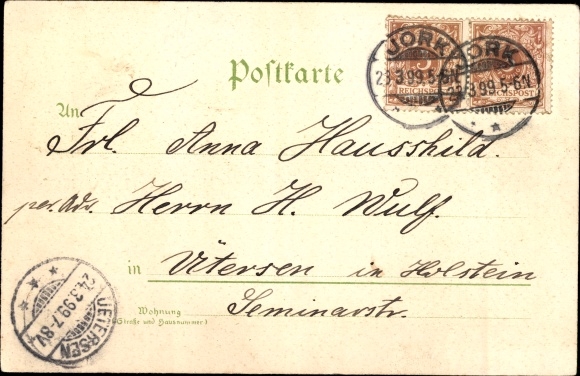 JORK JORK
23.3.99.5-6N. 23.3.99.5-6N.
REICHSPOST REICHSPOST
Postkarte
An
Frl. Anna Hausshild.
per. Adr. Herrn H. Wulf.
in Ütersen in Holstein
Seminarstr.
Wohnung
(Straße und Hausnummer)
UETERSEN
24.3.99.7-8V